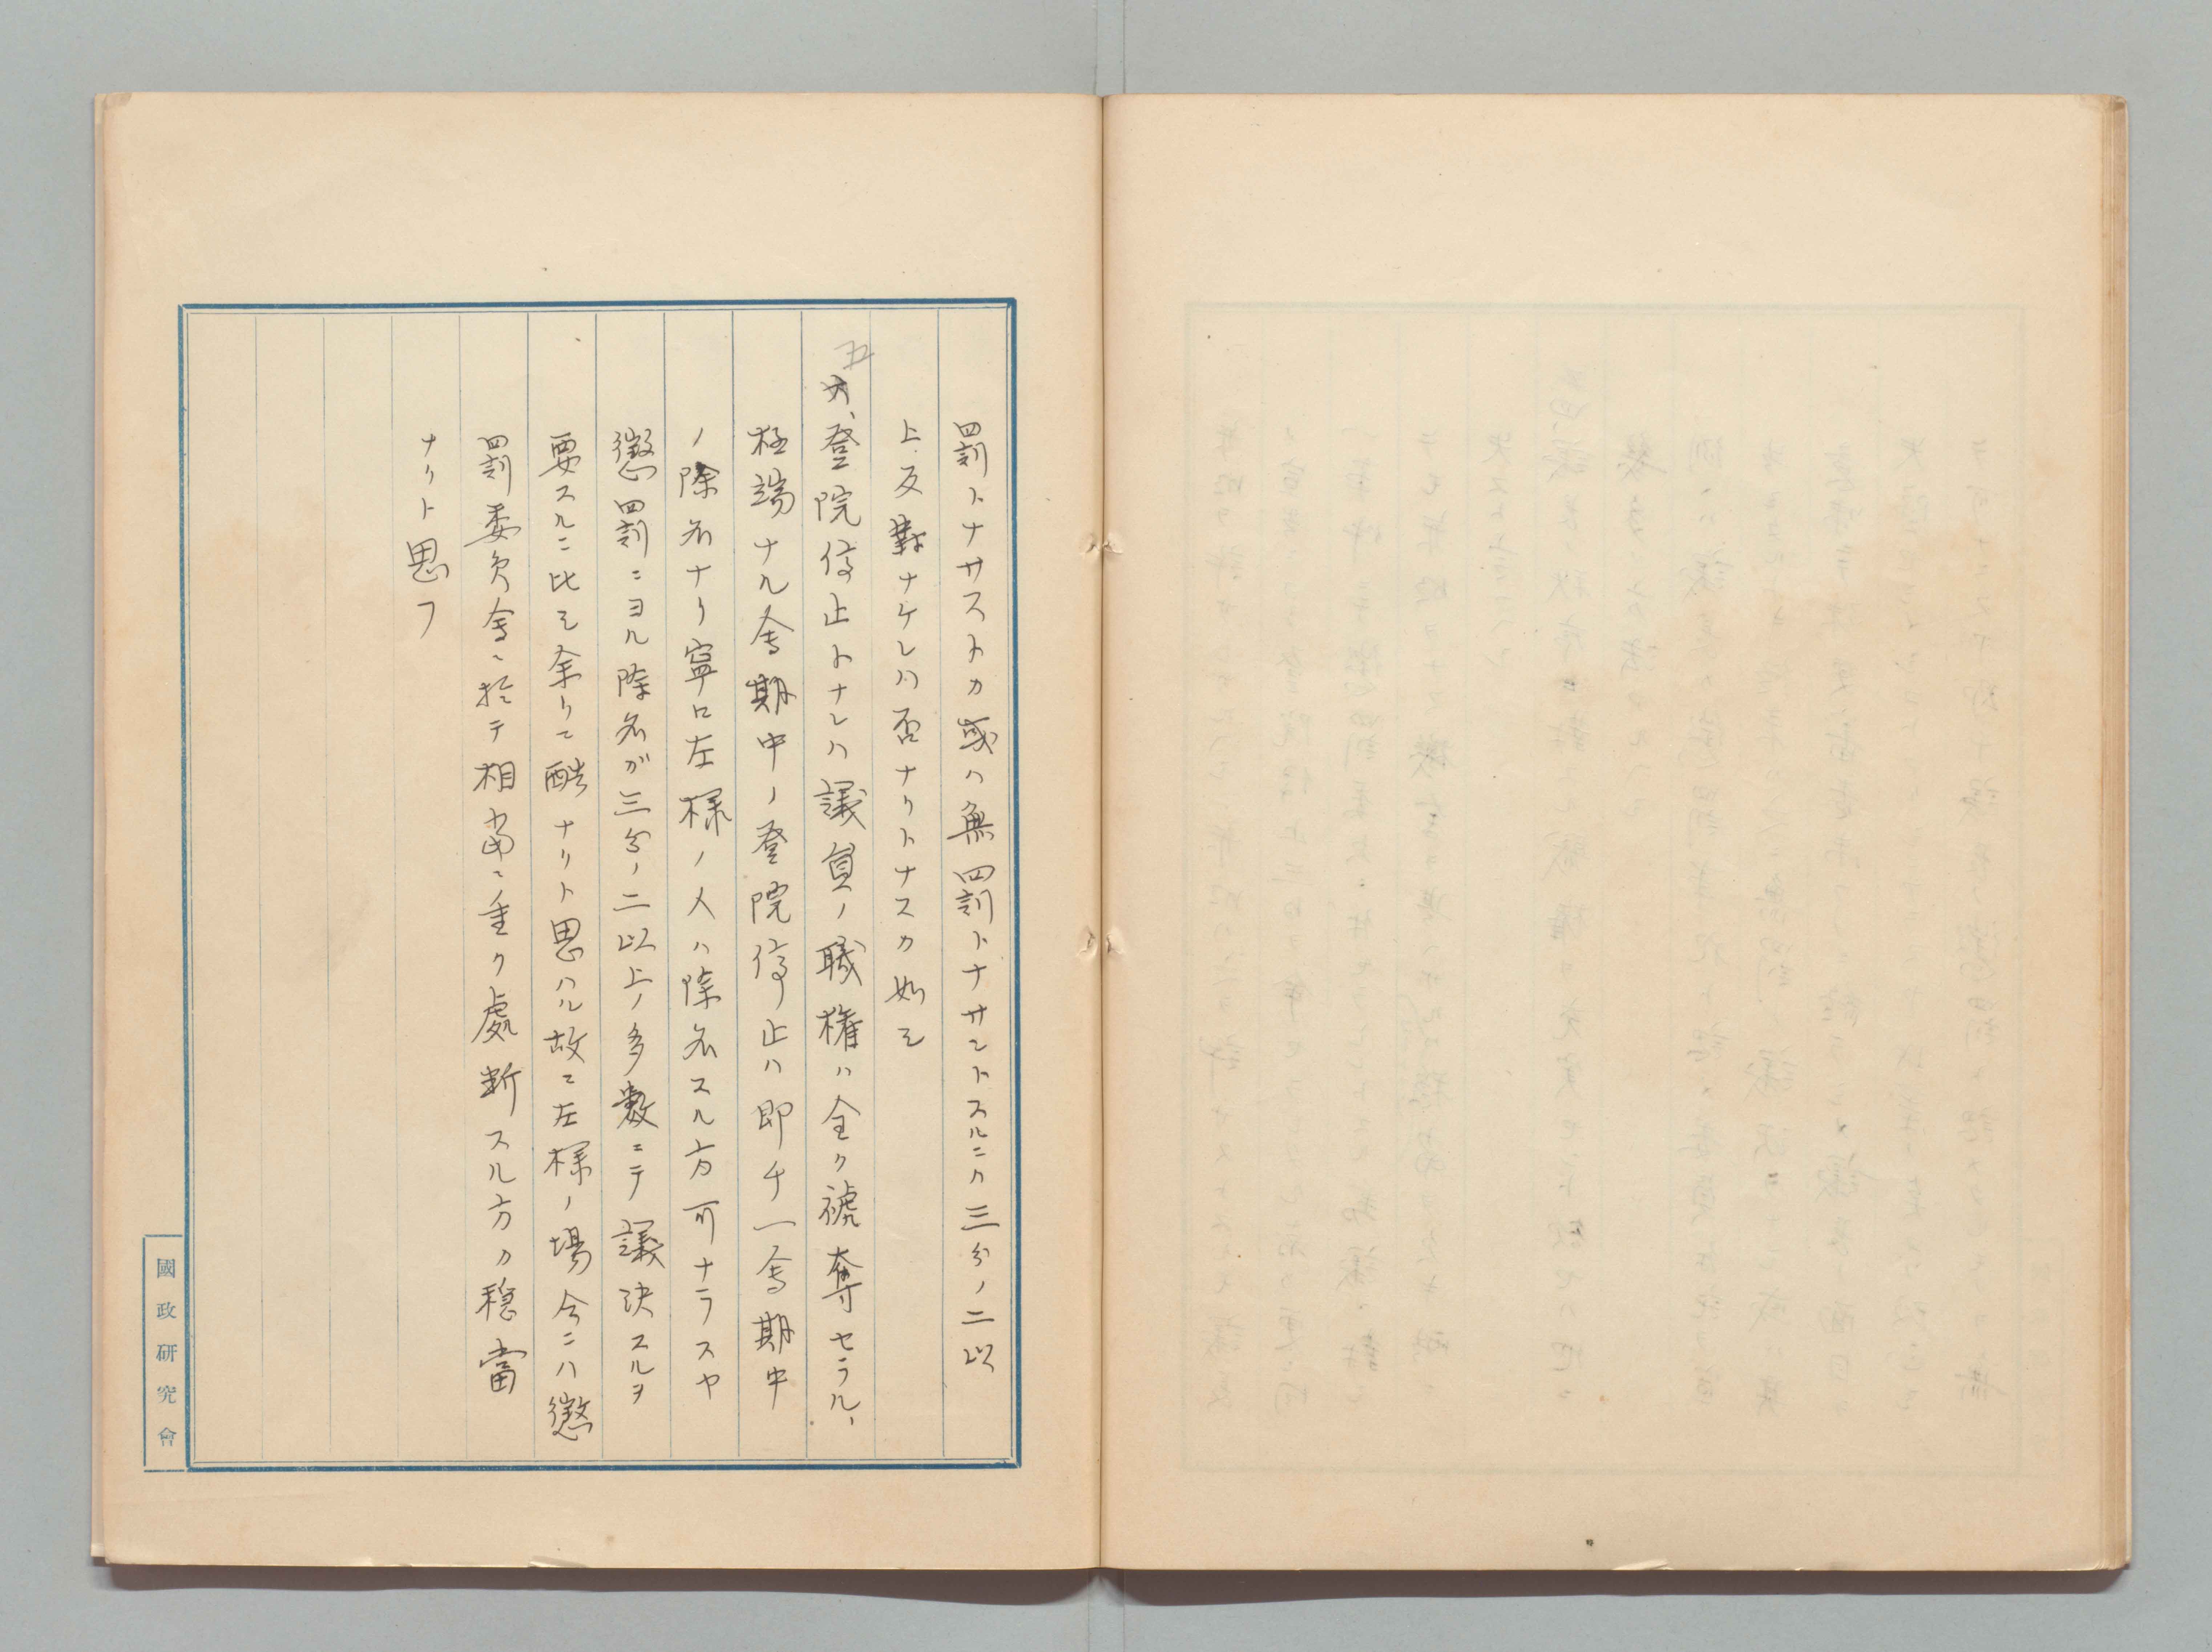 罰トナサストカ或ハ無罰トナサントスルニハ三分ノ二以
上反對ナケレハ否ナリトナスカ如シ
五
六、登院停止トナレハ議員ノ職権ハ全ク褫奪セラル、
極端ナル会期中ノ登院停止ハ即チ一会期中
ノ除名ナリ寧ロ左様ノ人ハ除名スル方可ナラスヤ
懲罰ニヨル除名が三分ノ二以上ノ多数ニテ議決スルヲ
要スルニ比シ余リニ酷ナリト思ハル故ニ左様ノ場合ニハ懲
罰委員会ニ於テ相当ニ重ク處断スル方カ穏當
ナリト思フ
國政研究會